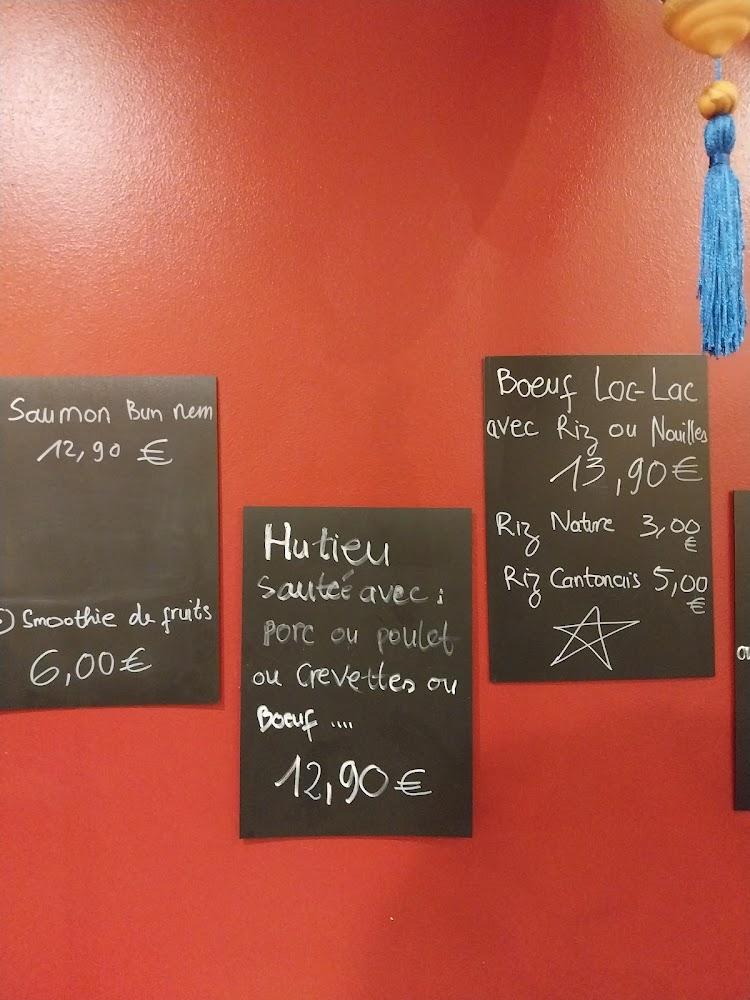 Saumon Bun nem
12,90 €
Smoothie de fruits
6,00 €
Hutieu
Sautée avec :
porc ou poulet
ou Crevettes ou
Boeuf ....
12,90 €
Boeuf Loc-Lac
avec Riz ou Nouilles
13,90 €
Riz Nature 3,00
€
Riz Cantonais 5,00
€